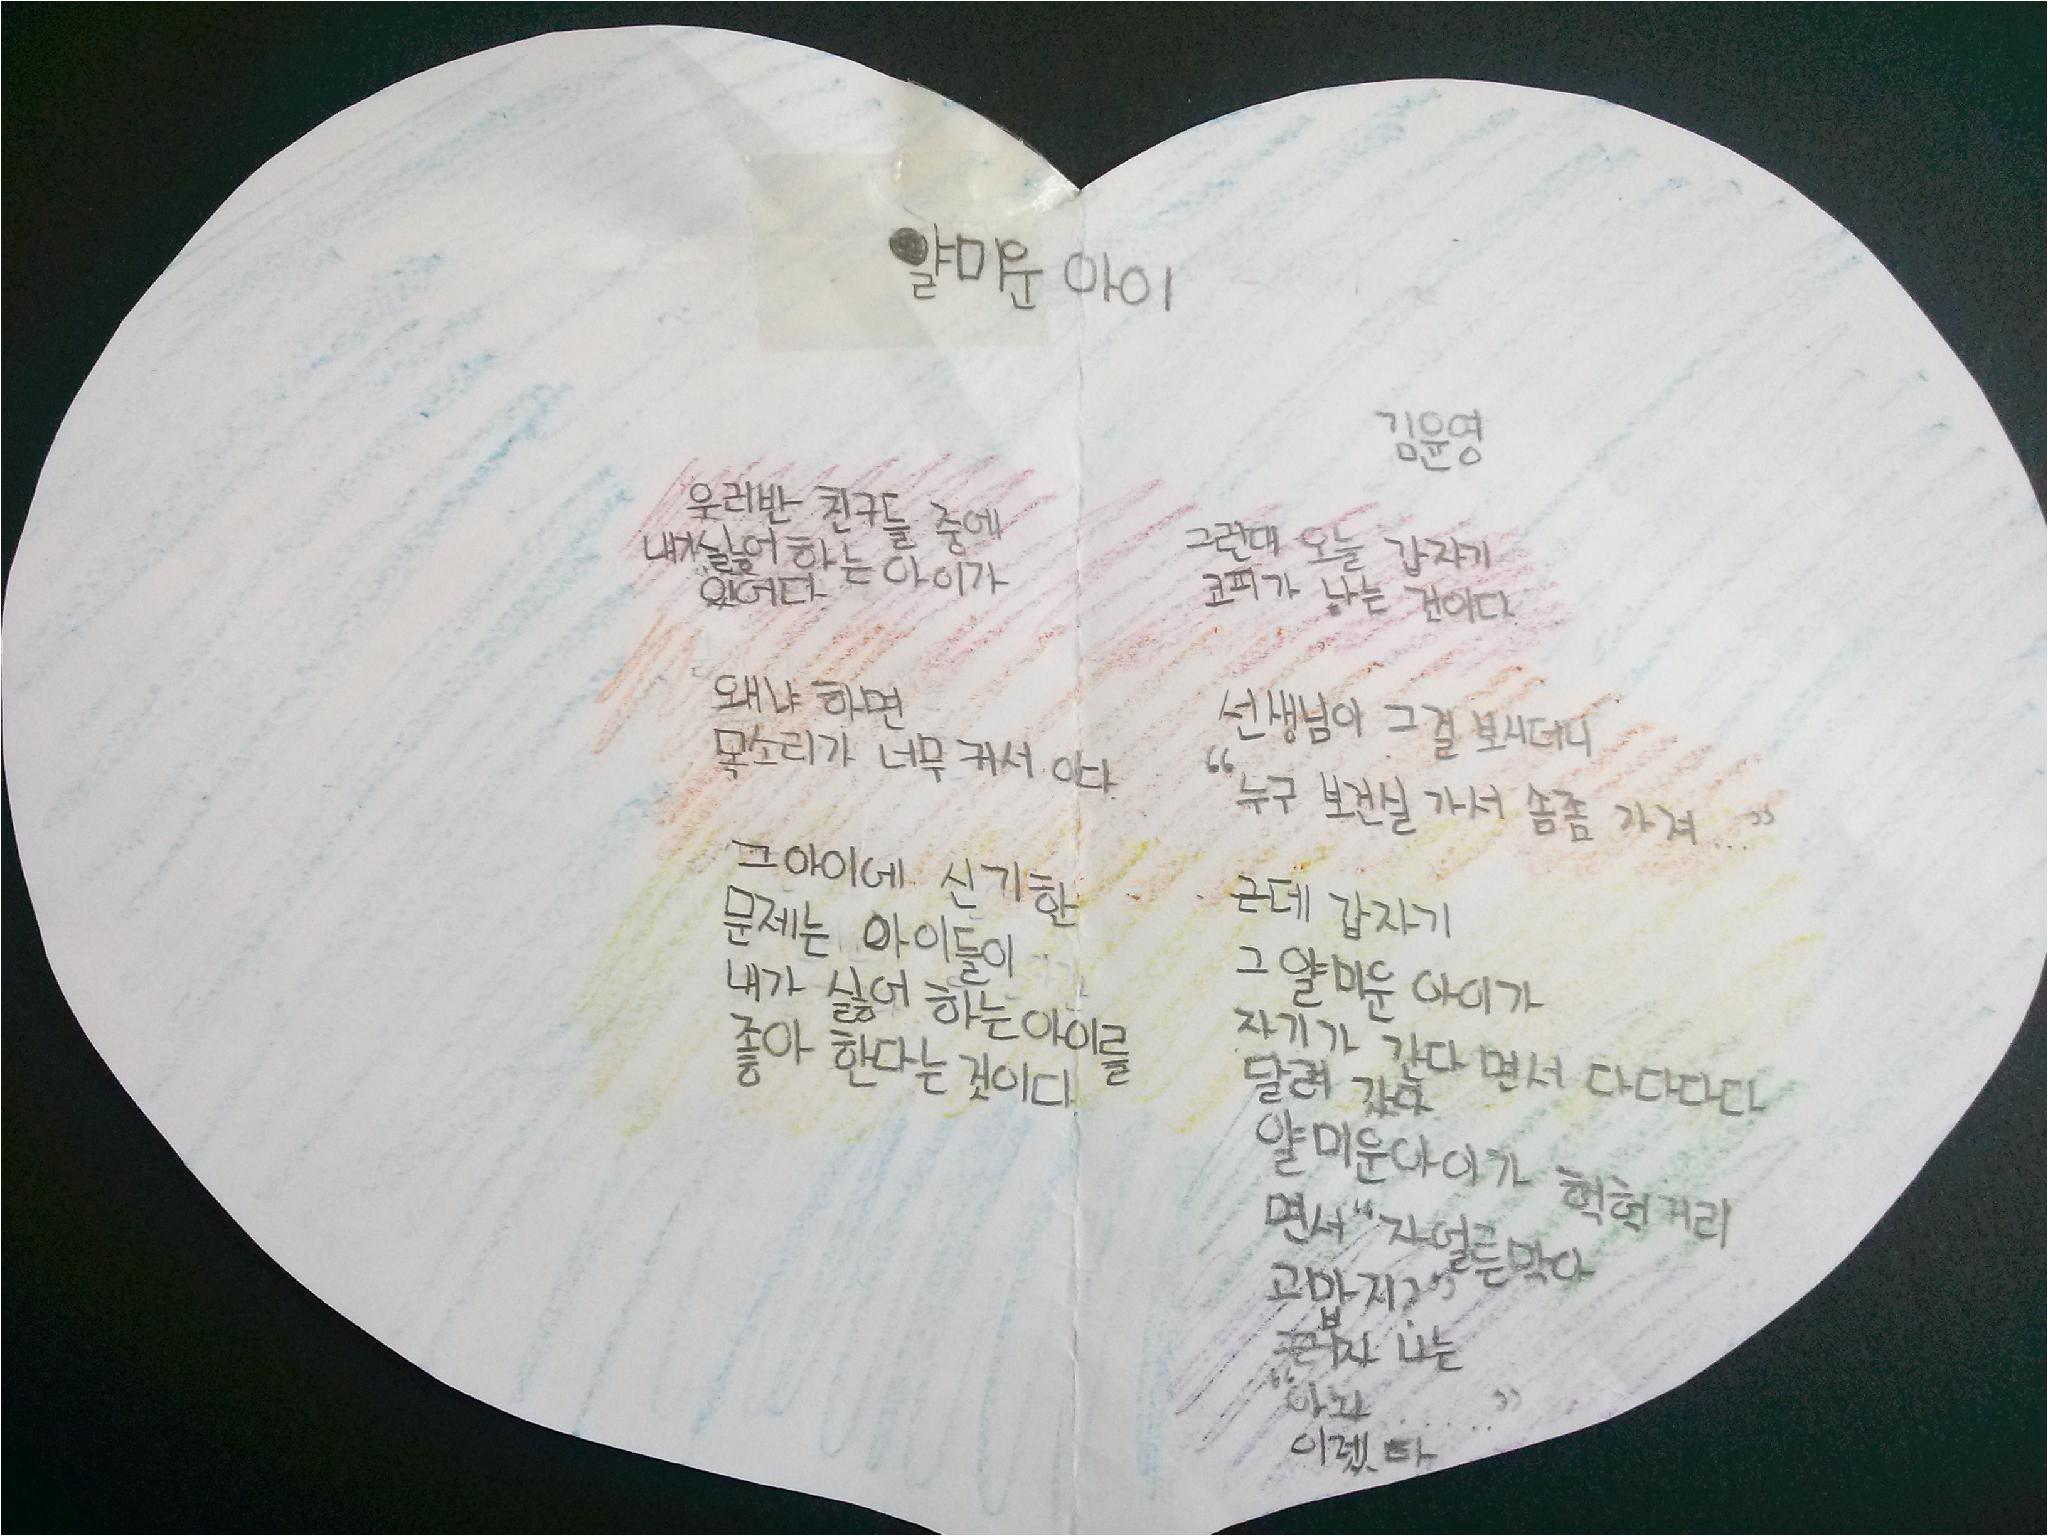 얄미운 아이
김윤영
우리반 친구들 중에
내가 싫어 하는 아이가
있어다
왜냐 하면
목소리가 너무 커서 이다
그아이에 신기한
문제는 아이들이
내가 싫어 하는 아이를
좋아 한다는 것이다
그런대 오늘 갑자기
코피가 나는 건이다
선생님이 그걸 보시더니
“누구 보건실 가서 솜좀 가져...”
근데 갑자기
그 얄미운 아이가
자기가 간다 면서 다다다다
달려
얄미운아이가 헉헉 거리
면서 “자 얼른막아
고맙지?”
나는
“아놔......”
이랬다